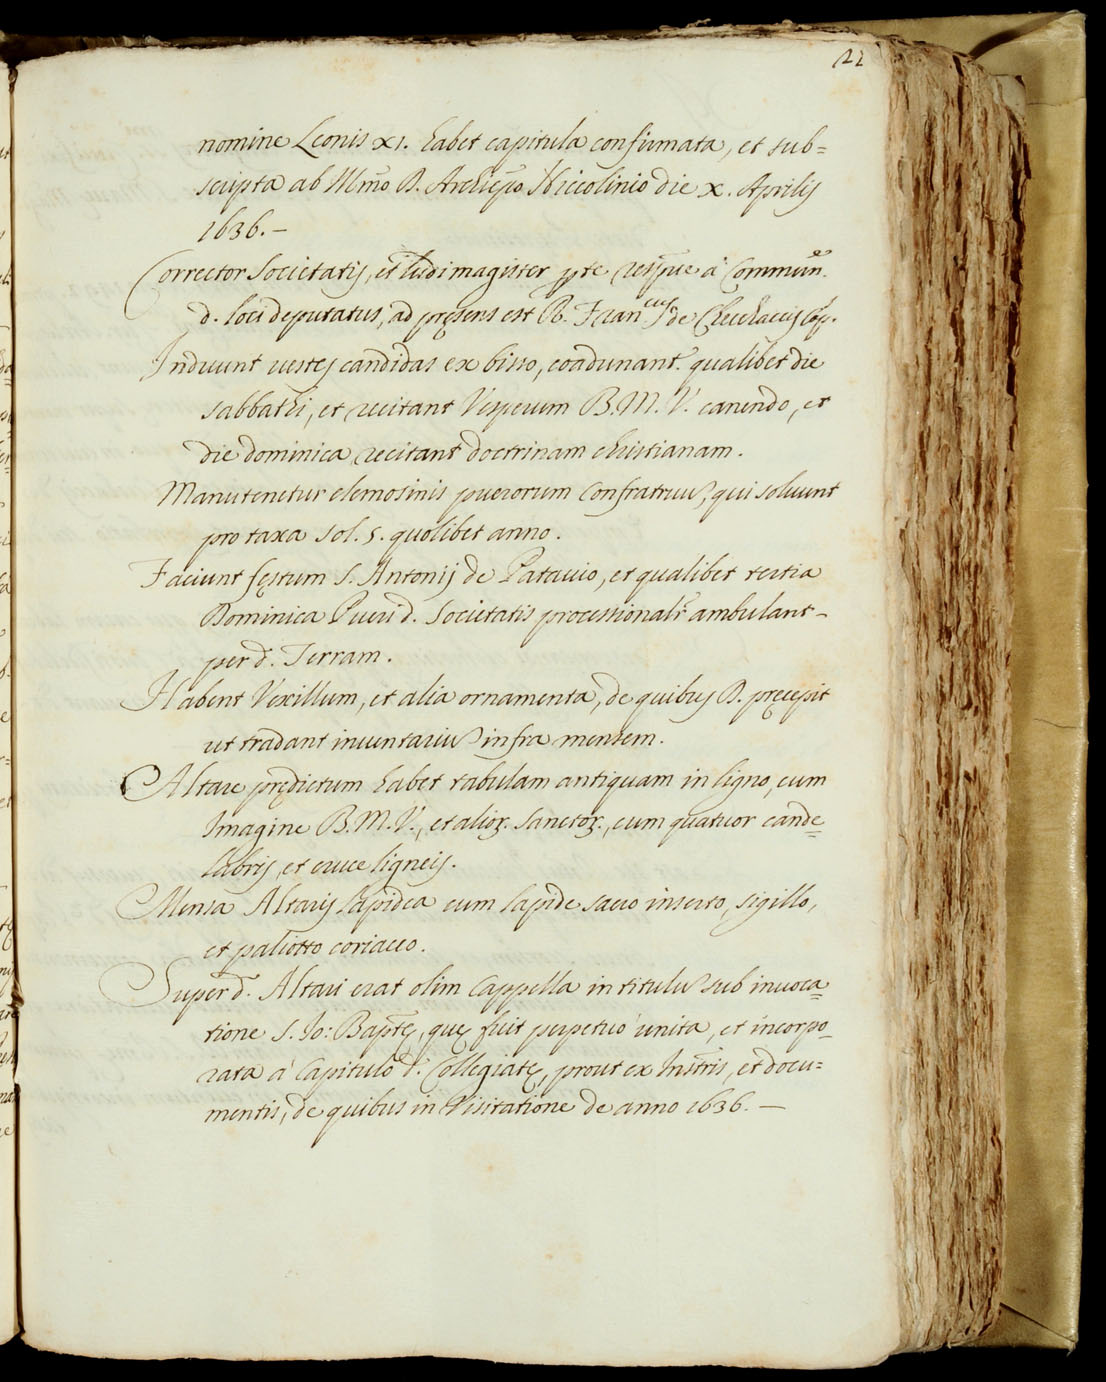 22
nomine Leonis XI. habet capitula confirmata, et sub=
scripta ab Illmo D. Archiepo Niccolinio die X. Aprilis
1636.–
Corrector Societatis, et ludimagister pte à Commune
d. loci deputatus, ad pręsens est R. Francus de
Induunt vestes candidas ex bisso, coadunant. qualibet die
sabbathi, et recitant Vesperum B. M. V. canendo, et
die dominica recitant doctrinam christianam.
Manutenetur elemosinis puerorum Confratrum, qui soluunt
pro taxa sol. 5. quolibet anno.
Faciunt festum S. Antonij de Patauio, et qualibet tertia
Dominica Pueri d. Societatis processionalr ambulant–
per d. Terram.
Habent Vexillum, et alia ornamenta, de quibus D. pręcepit
ut tradant inuentarium infra mensem.
Altare prędictum habet tabulam antiquam in ligno, cum
Imagine B. M. V., et alior. Sanctor., cum quatuor cande=
labris, et cruce ligneis.
Mensa Altaris lapidea cum lapide sacro inserto, sigillo,
et paliotto coriaceo.
Super d. Altari erat olim Cappella in titulu sub inuoca=
tione S. Jo: Baptę, quę fuit perpetuo unita, et incorpo=
rata à Capitulo d. Collegiatę, prout ex Instris, et docu=
mentis, de quibus in Visitatione de anno 1636.–